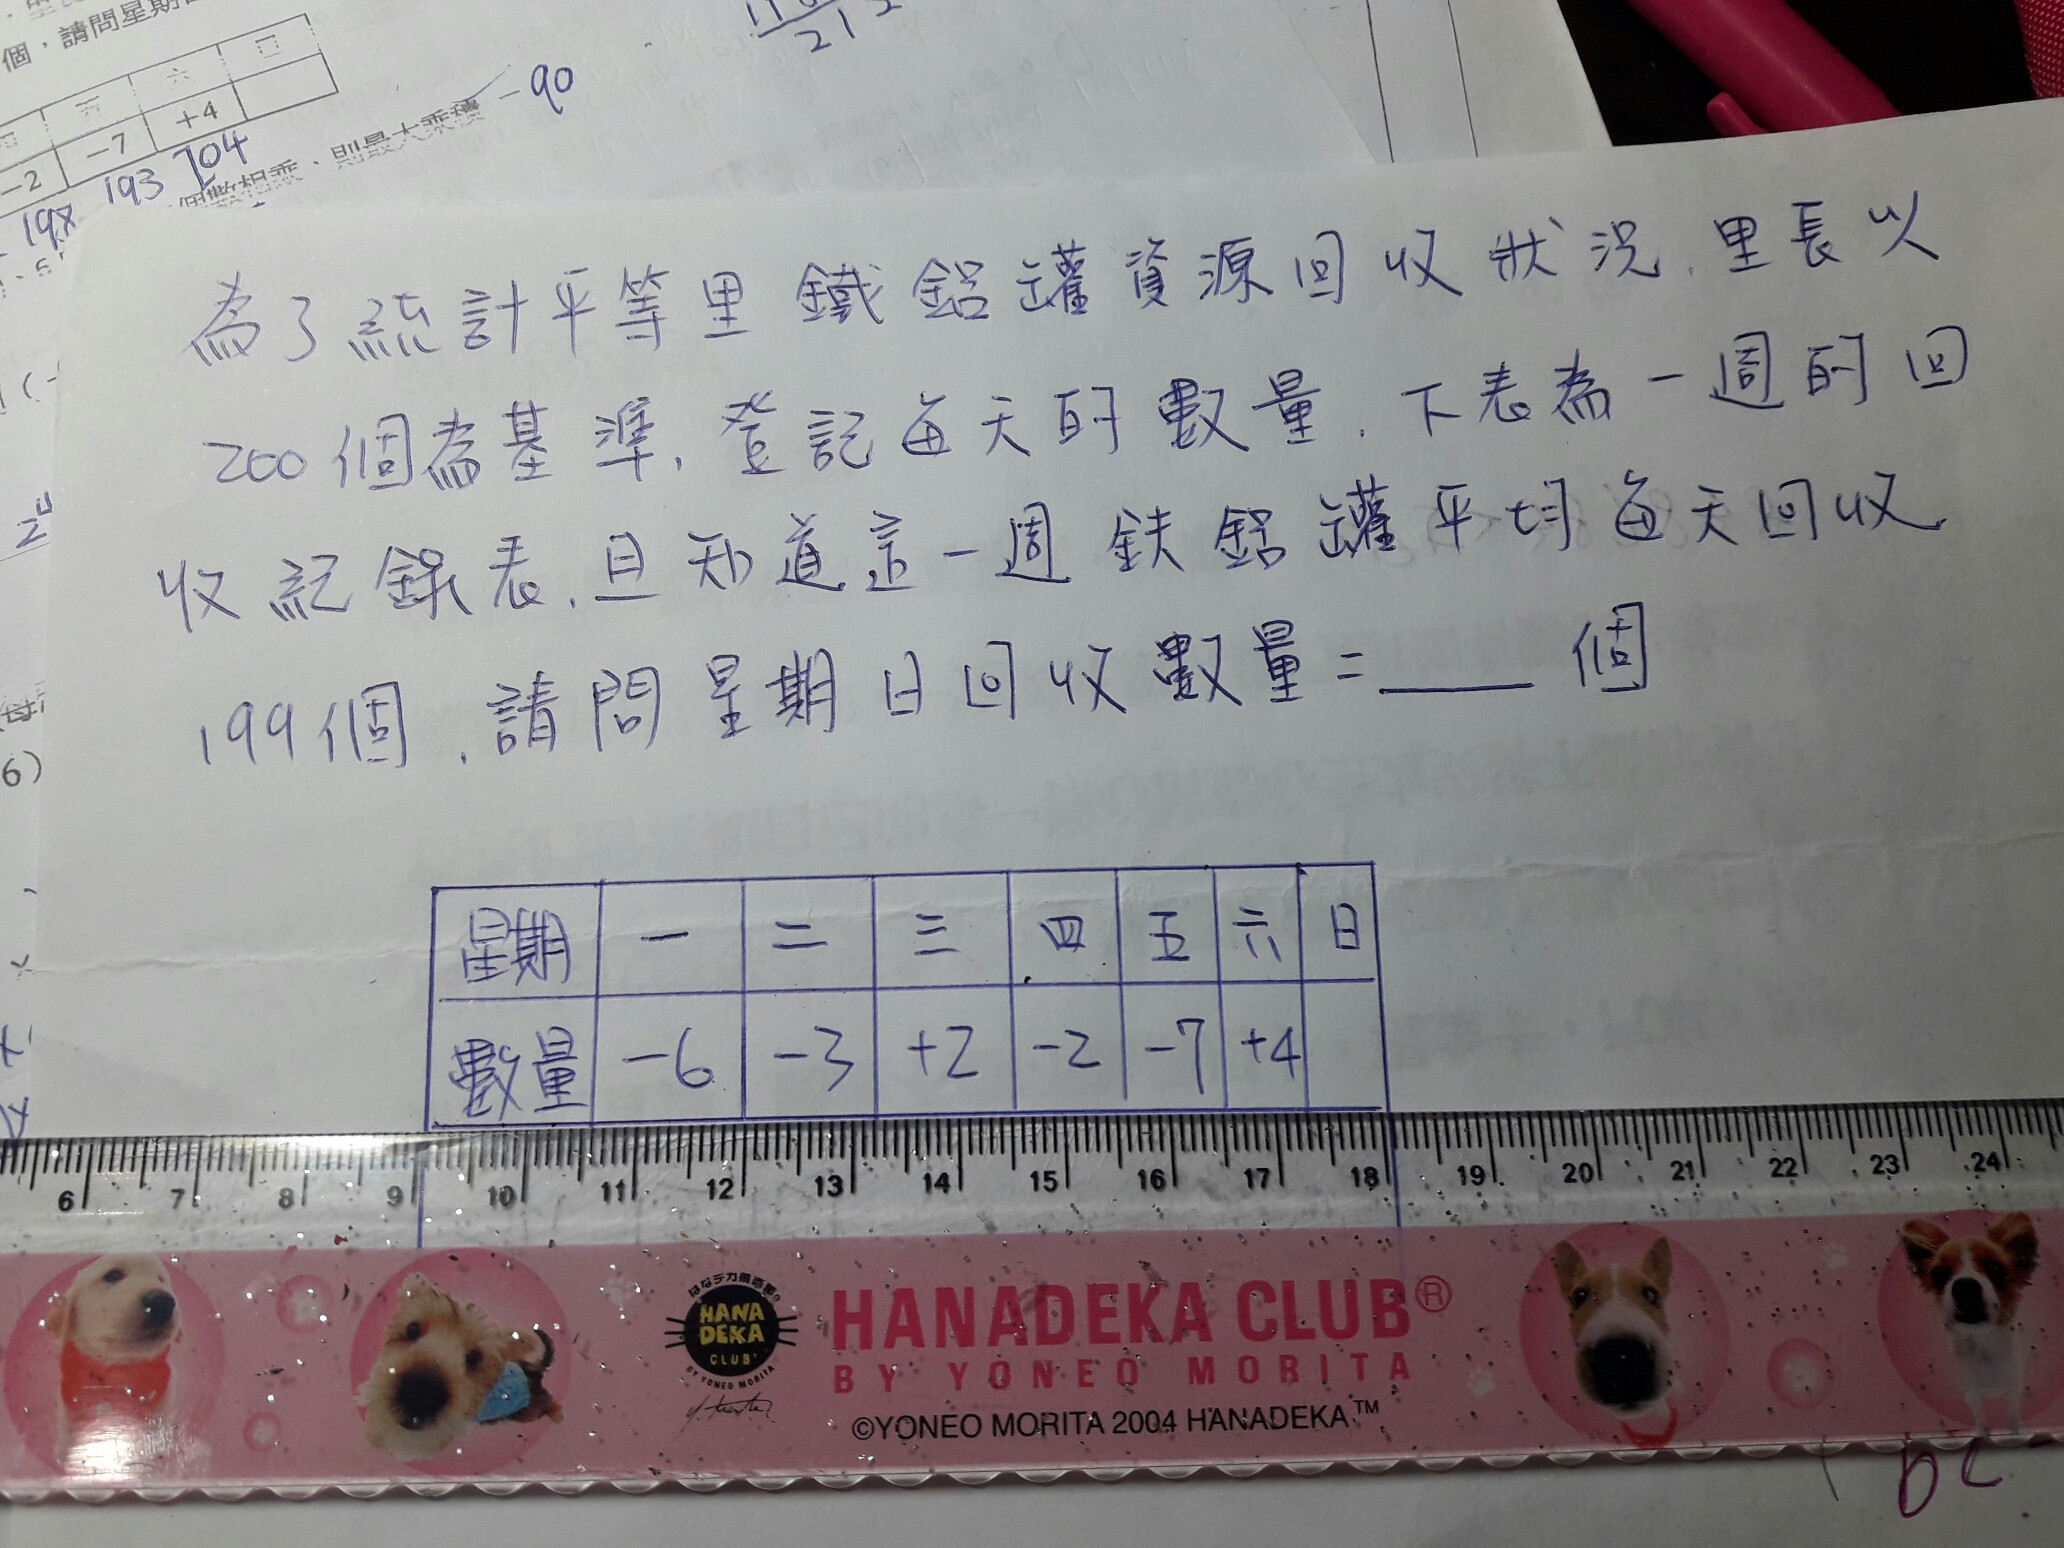 個，請問星期
六 日
五
-2 -7 +4
198 193 204
個數相乘，則最大乘積
-90
21
為了統計平等里鐵鋁罐資源回收狀況，里長以
200個為基準，登記每天的數量，下表為一週的回
收紀錄表，且知道這一週鉄鋁罐平均每天回收
199個，請問星期日回收數量=____個
6)
星期 一 二 三 四 五 六 日
數量 -6 -3 +2 -2 -7 +4
6 7 8 9 10 11 12 13 14 15 16 17 18 19 20 21 22 23 24
はなデカ倶楽部
HANA
DEKA
CLUB
BY YONEO MORITA
HANADEKA CLUB®
BY YONEO MORITA
©YONEO MORITA 2004 HANADEKA™